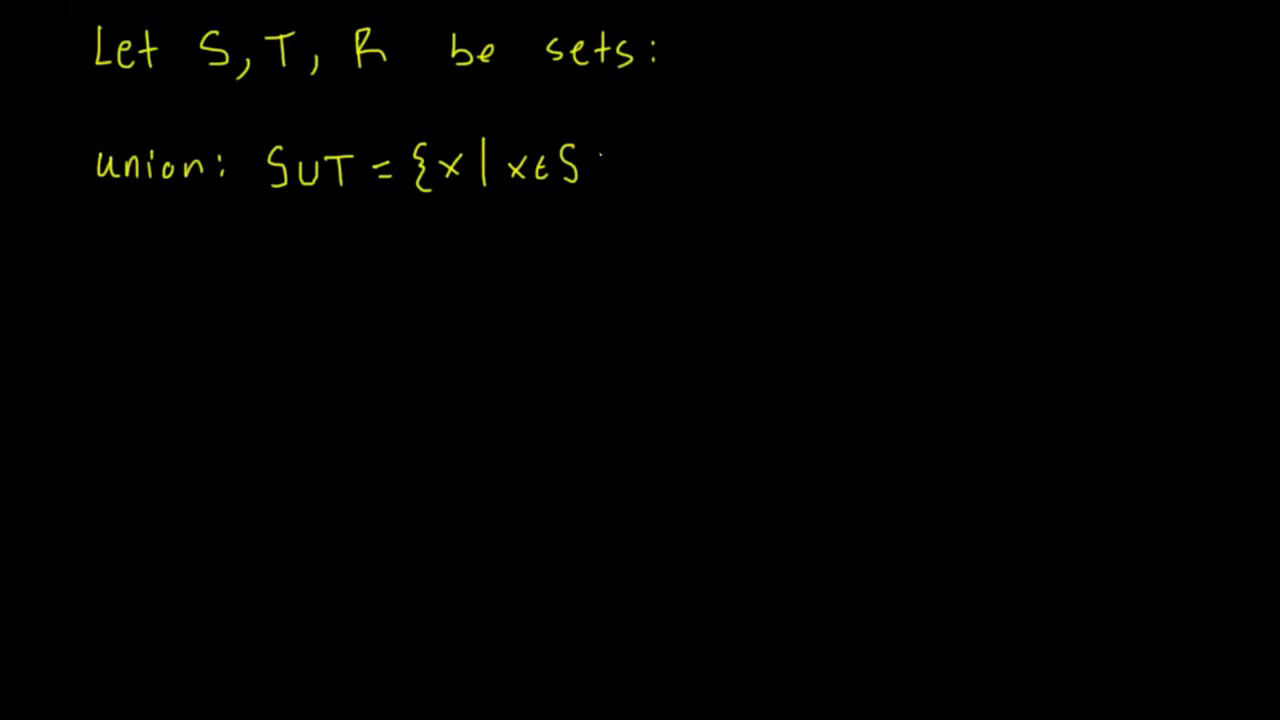 Let S, T, R be sets:
union: S∪T = {x | x∈S